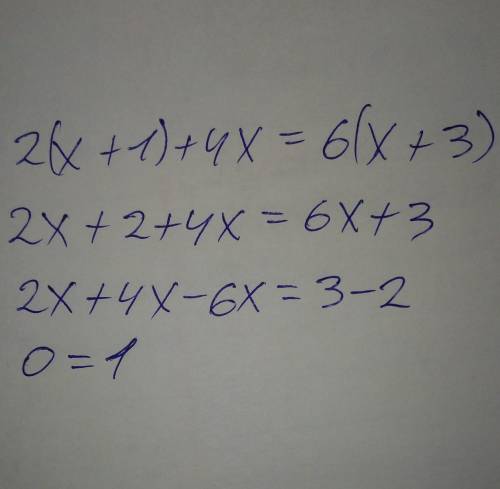 2(x+1)+4x=6(x+3)
2x+2+4x=6x+3
2x+4x-6x=3-2
0=1